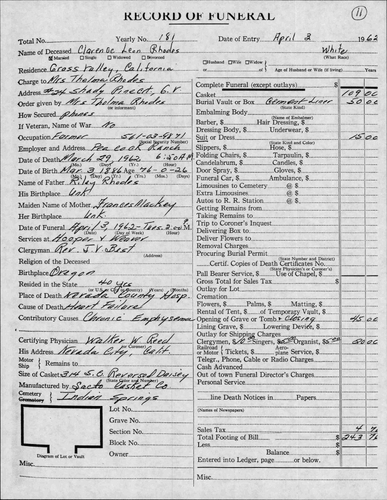 11
RECORD OF FUNERAL
Total No. Yearly No. 181 Date of Entry April 2 1962
Name of Deceased Clarence Leon Rhodes White
Married Single Widowed Divorced Husband Widow Wife of Age of Husband or Wife (if living) (What Race)
Residence Grass Valley, California
Charge to Mrs Thelma Rhodes
Address Shady Street, G.V
Order given by Mrs Thelma Rhodes
How Secured phones
If Veteran, Name of War No
Occupation Farmer
Employer and Address Peacock Ranch
Date of Death March 29, 1962
Date of Birth Mar 3 1886 Age 76-0-26
Name of Father Riley Rhodes
His Birthplace Unk
Maiden Name of Mother Frances Mackey
Her Birthplace Unk
Date of Funeral April 3, 1962 - Tues. 2:00 P.M.
Services at Hooper & Weaver
Clergyman Rev. J.V. Best
Religion of the Deceased
Birthplace Oregon
Resided in the State 40 yrs
Place of Death Nevada County Hosp.
Cause of Death Heart Failure
Contributory Causes Chronic Emphysema
Certifying Physician Walter W. Reed
His Address Nevada City, Calif.
Motor Ship Remains to
Size of Casket 3/4 S.O. Reversed Daisey
(State Color and Number)
Manufactured by Sacto Casket Co
Cemetery
Crematory Indian Springs
Lot No.
Grave No.
Section No.
Block No.
Owner
Diagram of Lot or Vault
Misc.
Complete Funeral (except outlays) $
Casket 109 00
Burial Vault or Box Cement Liner 50 00
(State Kind)
Embalming Body
(Name of Embalmer)
Barber, $ Hair Dressing, $
Dressing Body, $ Underwear, $
Suit or Dress 15 00
(State Kind and Color)
Slippers, $ Hose, $
Folding Chairs, $ Tarpaulin, $
Candelabrum, $ Candles, $
Door Spray, $ Gloves, $
Funeral Car, $ Ambulance, $
Limousines to Cemetery @ $
Extra Limousines @ $
Autos to R. R. Station @ $
Getting Remains from
Taking Remains to
Trip to Coroner's Inquest
Delivering Box to
Deliver Flowers to
Removal Charges
Procuring Burial Permit
(State Number and District)
Certif. Copies of Death Certificates No.
(State Physician's or Coroner's)
Pall Bearer Service, $ Use of Chapel, $
Gross Total for Sales Tax $
Outlay for Lot
Cremation
Flowers, $ Palms, $ Matting, $
Rental of Tent, $ of Temporary Vault, $
Opening of Grave or Tomb & Closing 45 00
Lining Grave, $ Lowering Device, $
Outlay for Shipping Charges
Clergymen, $10 Singers, $5 Organist, $5 20 00
Railroad or Motor Tickets, $ Aeroplane Service, $
Telegr., Phone, Cable or Radio Charges $
Cash Advanced
Out of town Funeral Director's Charges, $
Personal Service
line Death Notices in Papers
(Names of Newspapers)
Sales Tax 4 76
Total Footing of Bill $ 243 76
Less
Balance $
Entered into Ledger, page or below.
Misc.